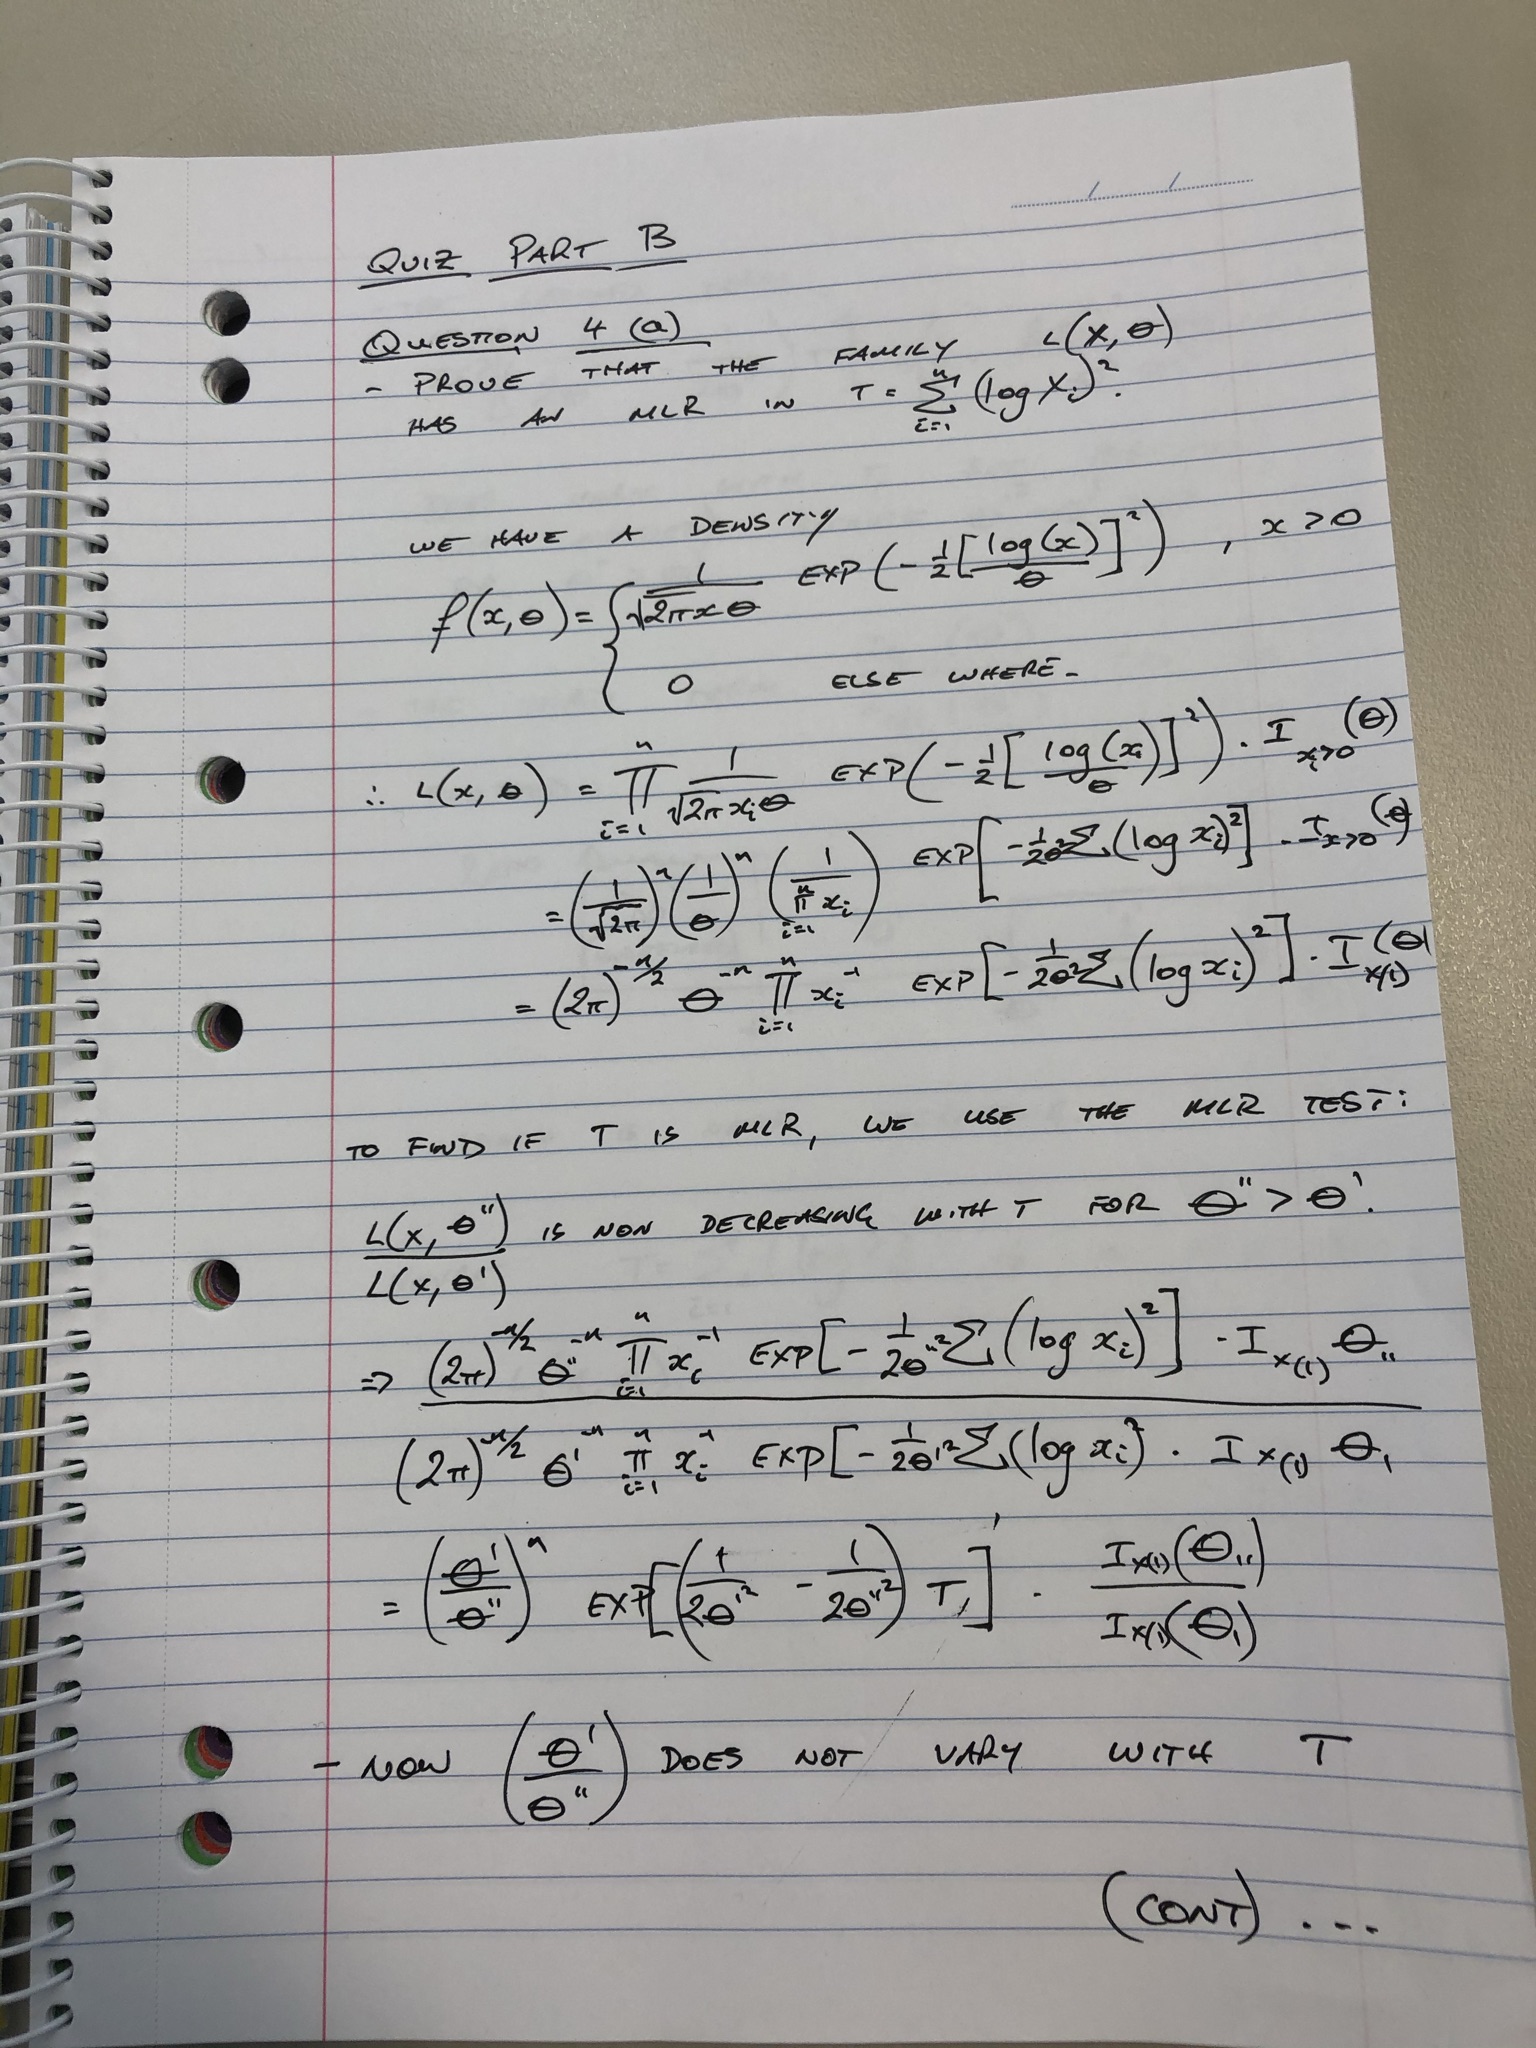 QUIZ PART B
QUESTION 4 (a)
- PROVE THAT THE FAMILY L(X, θ)
HAS AN MLR IN T = Σ_{i=1}^{n} (log X_i)².
WE HAVE A DENSITY
f(x, θ) = { 1/(√2π x θ) EXP(-1/2 [log(x)/θ]²) , x > 0
0 ELSE WHERE.
∴ L(x, θ) = ∏_{i=1}^{n} 1/(√2π x_i θ) EXP(-1/2 [log(x_i)/θ]²) . I_{x_i>0}(θ)
= (1/√2π)^n (1/θ)^n (1/∏_{i=1}^{n} x_i) EXP[-1/2θ² Σ (log x_i)²] . I_{x>0}(θ)
= (2π)^{-n/2} θ^{-n} ∏_{i=1}^{n} x_i^{-1} EXP[-1/2θ² Σ (log x_i)²] . I_{X(1)}(θ)
TO FIND IF T IS MLR, WE USE THE MLR TEST:
L(x, θ'')/L(x, θ') IS NON DECREASING WITH T FOR θ'' > θ'.
⇒ (2π)^{-n/2} θ''^{-n} ∏_{i=1}^{n} x_i^{-1} EXP[-1/2θ''² Σ (log x_i)²] . I_{X(1)} θ''
(2π)^{-n/2} θ'^{-n} ∏_{i=1}^{n} x_i^{-1} EXP[-1/2θ'² Σ (log x_i)² . I_{X(1)} θ'
= (θ'/θ'')^n EXP[(1/2θ'² - 1/2θ''²) T,] . I_{X(1)}(θ'')/I_{X(1)}(θ')
- NOW (θ'/θ'') DOES NOT VARY WITH T
(CONT) ...